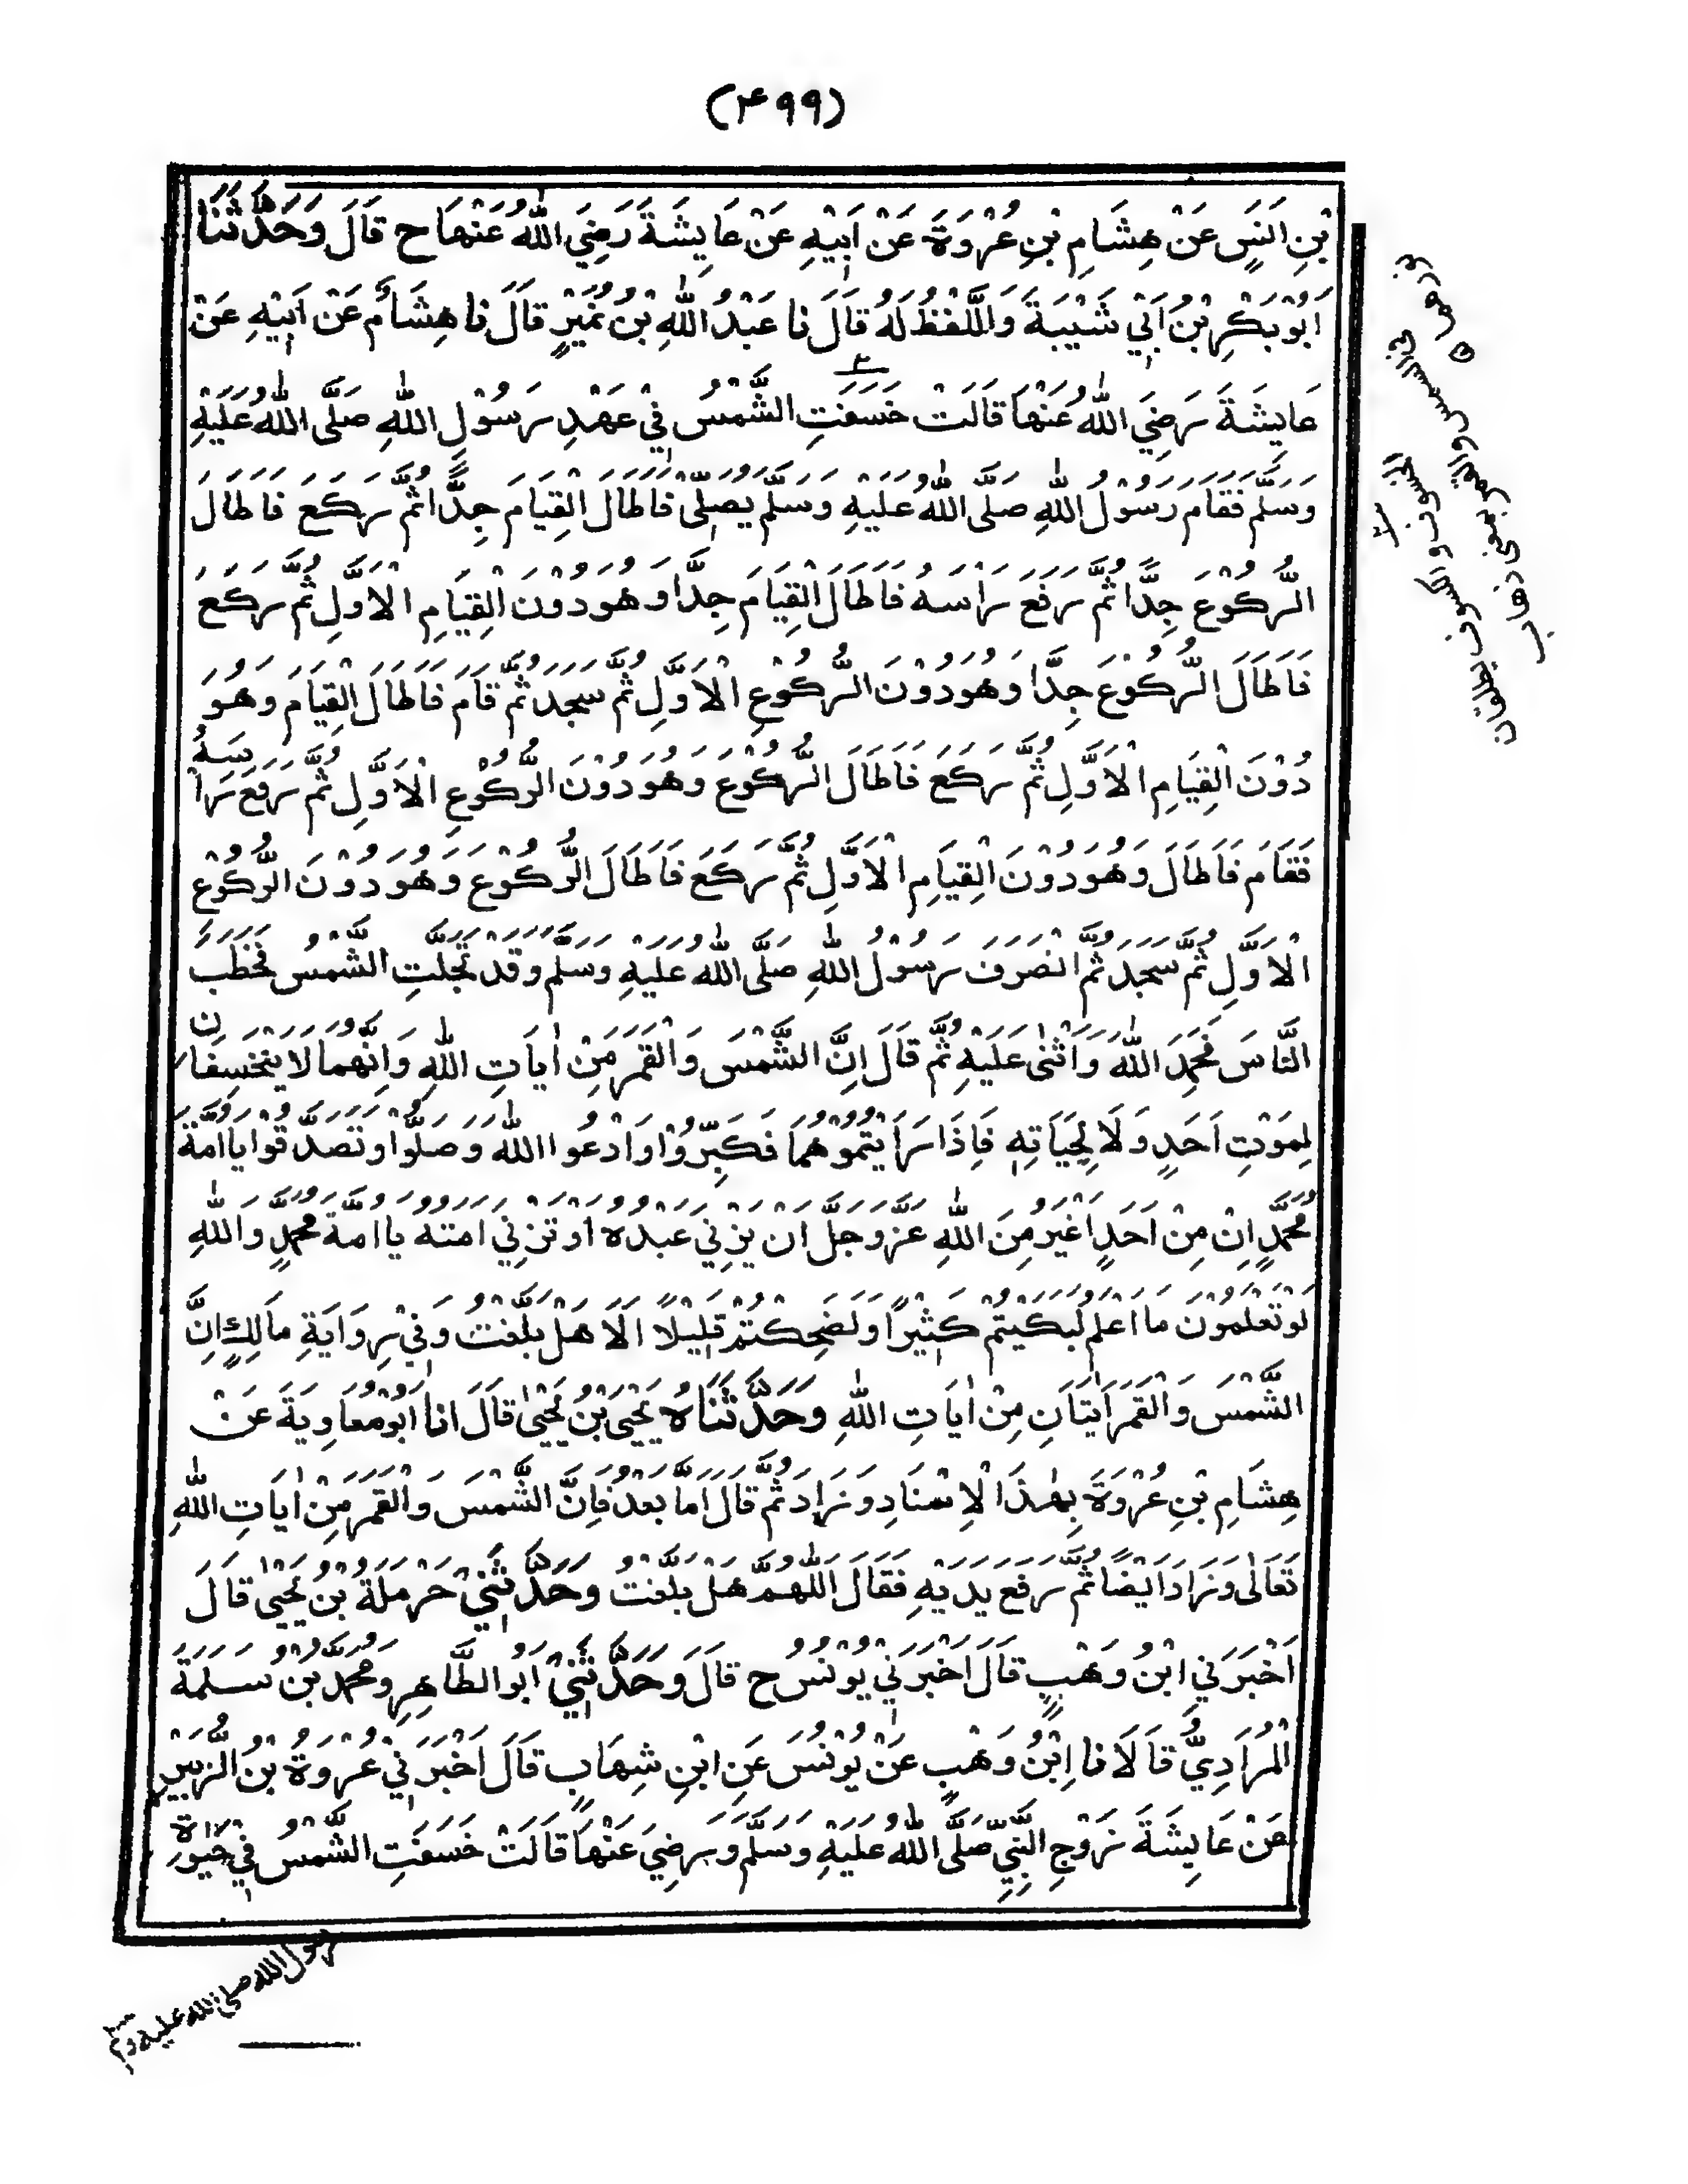 (۴۹۹)
بْنِ اَنَسٍ عَنْ هِشَامِ بْنِ عُرْوَةَ عَنْ اَبِيْهِ عَنْ عَايِشَةَ رَضِيَ اللّٰهُ عَنْهَا ح قَالَ وَحَدَّثَنَا
اَبُوْ بَكْرِ بْنُ اَبِيْ شَيْبَةَ وَاللَّفْظُ لَهُ قَالَ نَا عَبْدُ اللّٰهِ بْنُ نُمَيْرٍ قَالَ نَا هِشَامٌ عَنْ اَبِيْهِ عَنْ
عَايِشَةَ رَضِيَ اللّٰهُ عَنْهَا قَالَتْ خَسَفَتِ الشَّمْسُ فِيْ عَهْدِ رَسُوْلِ اللّٰهِ صَلَّى اللّٰهُ عَلَيْهِ
وَسَلَّمَ فَقَامَ رَسُوْلُ اللّٰهِ صَلَّى اللّٰهُ عَلَيْهِ وَسَلَّمَ يُصَلِّيْ فَاَطَالَ الْقِيَامَ جِدًّا ثُمَّ رَكَعَ فَاَطَالَ
الرُّكُوْعَ جِدًّا ثُمَّ رَفَعَ رَاْسَهُ فَاَطَالَ الْقِيَامَ جِدًّا وَهُوَ دُوْنَ الْقِيَامِ الْاَوَّلِ ثُمَّ رَكَعَ
فَاَطَالَ الرُّكُوْعَ جِدًّا وَهُوَ دُوْنَ الرُّكُوْعِ الْاَوَّلِ ثُمَّ سَجَدَ ثُمَّ قَامَ فَاَطَالَ الْقِيَامَ وَهُوَ
دُوْنَ الْقِيَامِ الْاَوَّلِ ثُمَّ رَكَعَ فَاَطَالَ الرُّكُوْعَ وَهُوَ دُوْنَ الرُّكُوْعِ الْاَوَّلِ ثُمَّ رَفَعَ رَاْسَهُ
فَقَامَ فَاَطَالَ وَهُوَ دُوْنَ الْقِيَامِ الْاَوَّلِ ثُمَّ رَكَعَ فَاَطَالَ الرُّكُوْعَ وَهُوَ دُوْنَ الرُّكُوْعِ
الْاَوَّلِ ثُمَّ سَجَدَ ثُمَّ انْصَرَفَ رَسُوْلُ اللّٰهِ صَلَّى اللّٰهُ عَلَيْهِ وَسَلَّمَ وَقَدْ تَجَلَّتِ الشَّمْسُ فَخَطَبَ
النَّاسَ فَحَمِدَ اللّٰهَ وَاَثْنٰى عَلَيْهِ ثُمَّ قَالَ اِنَّ الشَّمْسَ وَالْقَمَرَ مِنْ اٰيَاتِ اللّٰهِ وَاِنَّهُمَا لَا يَنْخَسِفَانِ
لِمَوْتِ اَحَدٍ وَلَا لِحَيَاتِهِ فَاِذَا رَاَيْتُمُوْهُمَا فَكَبِّرُوْا وَادْعُوا اللّٰهَ وَصَلُّوْا وَتَصَدَّقُوْا يَا اُمَّةَ
مُحَمَّدٍ اِنْ مِنْ اَحَدٍ اَغْيَرُ مِنَ اللّٰهِ عَزَّ وَجَلَّ اَنْ يَزْنِيَ عَبْدُهُ اَوْ تَزْنِيَ اَمَتُهُ يَا اُمَّةَ مُحَمَّدٍ وَاللّٰهِ
لَوْ تَعْلَمُوْنَ مَا اَعْلَمُ لَبَكَيْتُمْ كَثِيْرًا وَلَضَحِكْتُمْ قَلِيْلًا اَلَا هَلْ بَلَّغْتُ وَفِيْ رِوَايَةِ مَالِكٍ اِنَّ
الشَّمْسَ وَالْقَمَرَ اٰيَتَانِ مِنْ اٰيَاتِ اللّٰهِ وَحَدَّثَنَاهُ يَحْيَى بْنُ يَحْيٰى قَالَ اَنَا اَبُوْ مُعَاوِيَةَ عَنْ
هِشَامِ بْنِ عُرْوَةَ بِهٰذَا الْاِسْنَادِ وَزَادَ ثُمَّ قَالَ اَمَّا بَعْدُ فَاِنَّ الشَّمْسَ وَالْقَمَرَ مِنْ اٰيَاتِ اللّٰهِ
تَعَالٰى وَزَادَ اَيْضًا ثُمَّ رَفَعَ يَدَيْهِ فَقَالَ اللّٰهُمَّ هَلْ بَلَّغْتُ وَحَدَّثَنِيْ حَرْمَلَةُ بْنُ يَحْيٰى قَالَ
اَخْبَرَنِي ابْنُ وَهْبٍ قَالَ اَخْبَرَنِيْ يُوْنُسُ ح قَالَ وَحَدَّثَنِيْ اَبُو الطَّاهِرِ وَمُحَمَّدُ بْنُ سَلَمَةَ
الْمُرَادِيُّ قَالَا نَا اِبْنُ وَهْبٍ عَنْ يُوْنُسَ عَنِ ابْنِ شِهَابٍ قَالَ اَخْبَرَنِيْ عُرْوَةُ بْنُ الزُّبَيْرِ
عَنْ عَايِشَةَ زَوْجِ النَّبِيِّ صَلَّى اللّٰهُ عَلَيْهِ وَسَلَّمَ وَرَضِيَ عَنْهَا قَالَتْ خَسَفَتِ الشَّمْسُ فِيْ حَيٰوةِ
رسول الله صلى الله عليه وسلم
الخسوف والكسوف يطلقان
في الشمس والقمر بمعنى ذهاب